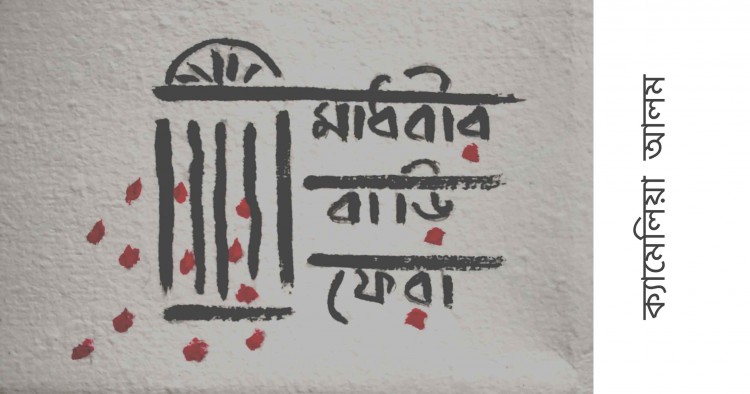 মাধবীর
বাড়ি
ফেরা
ক্যামেলিয়া আলম